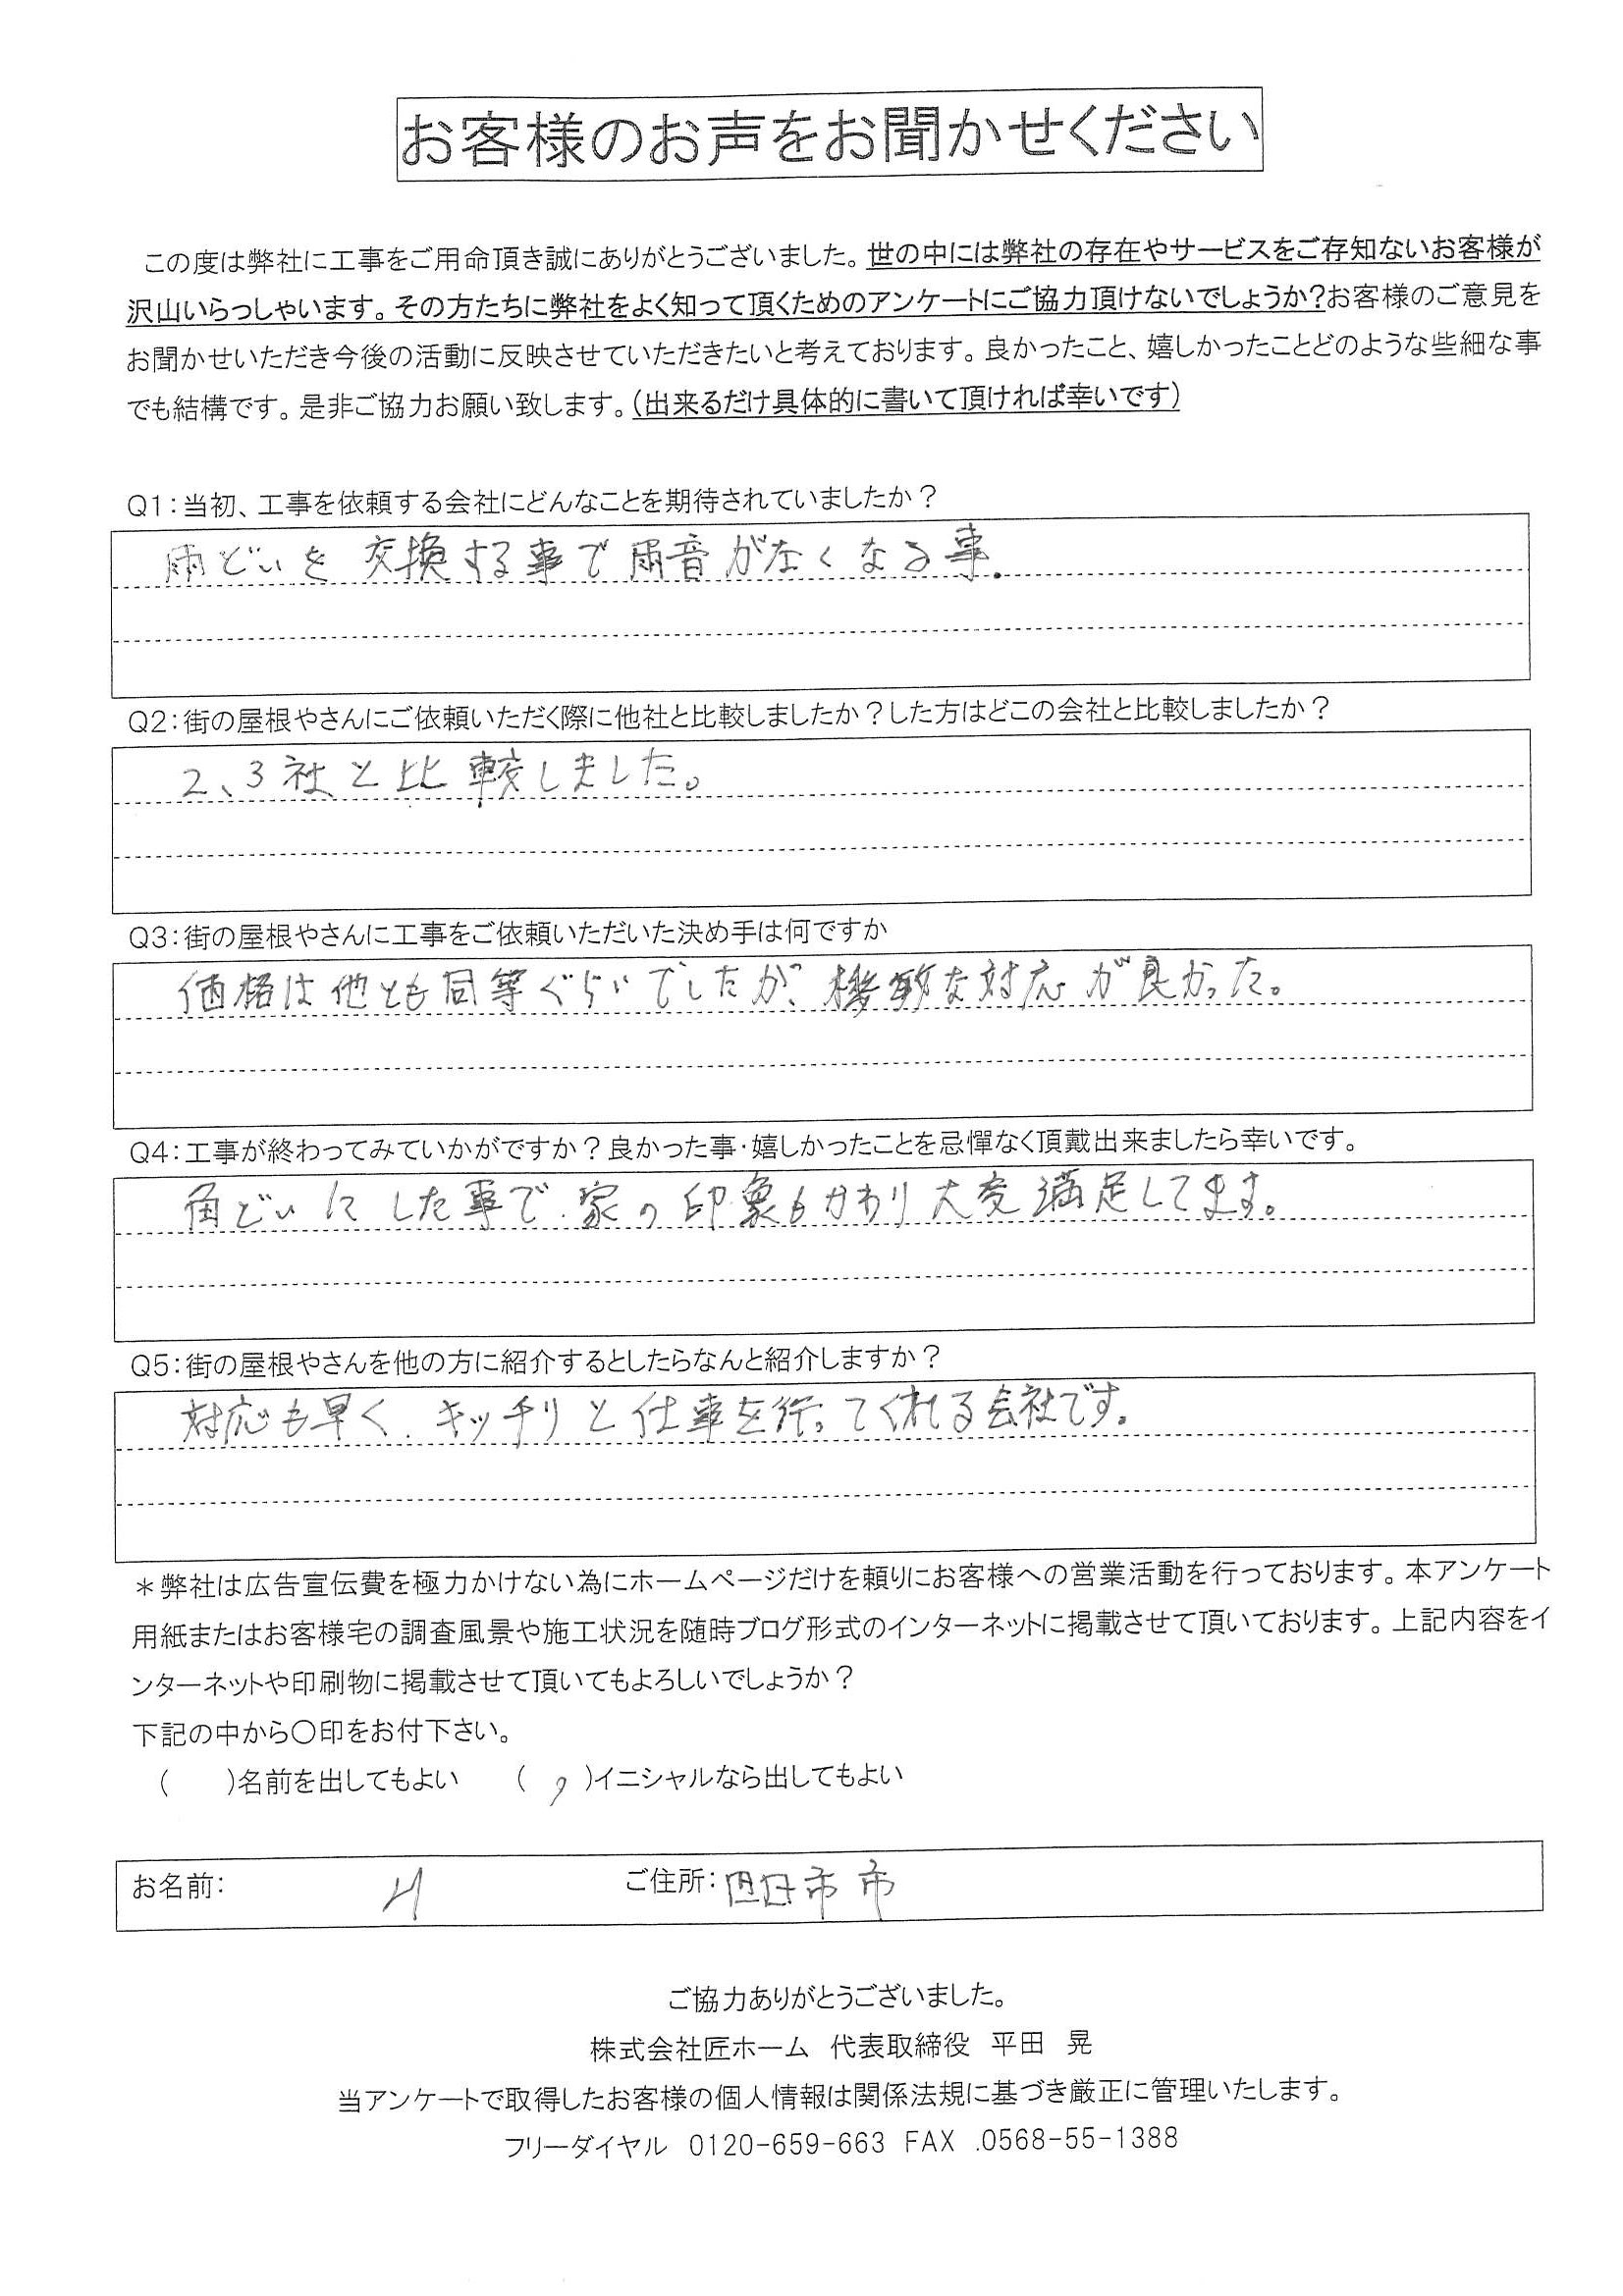 お客様のお声をお聞かせください
この度は弊社に工事をご用命頂き誠にありがとうございました。世の中には弊社の存在やサービスをご存知ないお客様が
沢山いらっしゃいます。その方たちに弊社をよく知って頂くためのアンケートにご協力頂けないでしょうか?お客様のご意見を
お聞かせいただき今後の活動に反映させていただきたいと考えております。良かったこと、嬉しかったことどのような些細な事
でも結構です。是非ご協力お願い致します。(出来るだけ具体的に書いて頂ければ幸いです)
Q1:当初、工事を依頼する会社にどんなことを期待されていましたか?
雨どいを交換する事で雨音がなくなる事.
Q2:街の屋根やさんにご依頼いただく際に他社と比較しましたか?した方はどこの会社と比較しましたか?
2、3社と比較しました。
Q3:街の屋根やさんに工事をご依頼いただいた決め手は何ですか
価格は他とも同等ぐらいでしたが、機敏な対応が良かった。
Q4:工事が終わってみていかがですか?良かった事・嬉しかったことを忌憚なく頂戴出来ましたら幸いです。
角どいにした事で、家の印象もかわり大変満足してます。
Q5:街の屋根やさんを他の方に紹介するとしたらなんと紹介しますか?
対応も早く、キッチリと仕事を行ってくれる会社です。
*弊社は広告宣伝費を極力かけない為にホームページだけを頼りにお客様への営業活動を行っております。本アンケート
用紙またはお客様宅の調査風景や施工状況を随時ブログ形式のインターネットに掲載させて頂いております。上記内容をイ
ンターネットや印刷物に掲載させて頂いてもよろしいでしょうか?
下記の中から〇印をお付下さい。
( )名前を出してもよい ( )イニシャルなら出してもよい
お名前: H ご住所:四日市市
ご協力ありがとうございました。
株式会社匠ホーム 代表取締役 平田 晃
当アンケートで取得したお客様の個人情報は関係法規に基づき厳正に管理いたします。
フリーダイヤル 0120-659-663 FAX .0568-55-1388